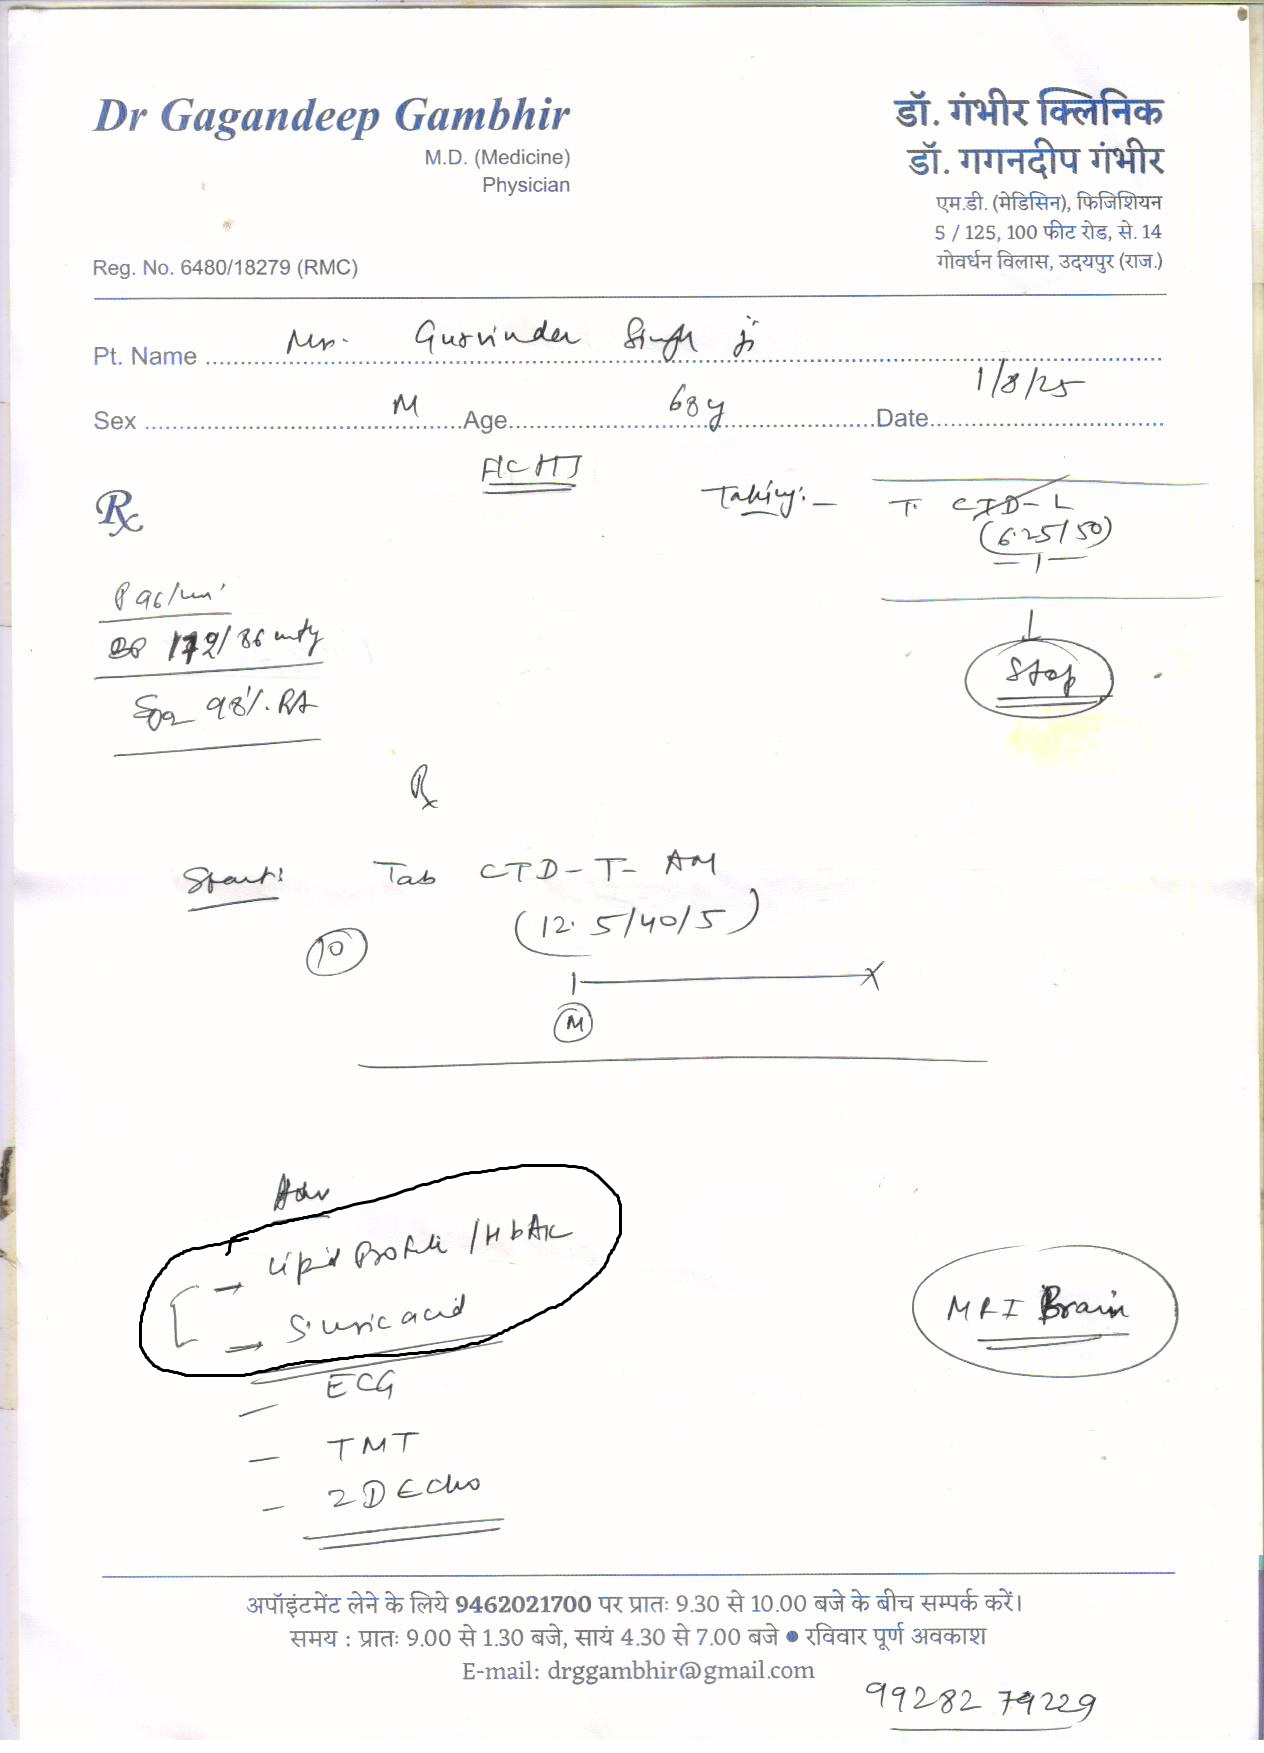 Dr Gagandeep Gambhir
M.D. (Medicine)
Physician
Reg. No. 6480/18279 (RMC)
डॉ. गंभीर क्लिनिक
डॉ. गगनदीप गंभीर
एम.डी. (मेडिसिन), फिजिशियन
5 / 125, 100 फीट रोड, से. 14
गोवर्धन विलास, उदयपुर (राज.)
Pt. Name Mr. Gurvinder Singh ji
Sex M Age 68y Date 1/8/25
Rx
Taking:- T. CTD-L
(6.25/50)
1
Stop
P 96/min
BP 172/86 mmHg
SpO2 98%. RA
Rx
Start: Tab CTD-T-AM
(12.5/40/5)
10
1 x
M
Adv
Lipid Profile /HbA1c
S. uric acid
MRI Brain
- ECG
- TMT
- 2D Echo
अपॉइंटमेंट लेने के लिये 9462021700 पर प्रातः 9.30 से 10.00 बजे के बीच सम्पर्क करें।
समय : प्रातः 9.00 से 1.30 बजे, सायं 4.30 से 7.00 बजे ● रविवार पूर्ण अवकाश
E-mail: drggambhir@gmail.com
99282 79229